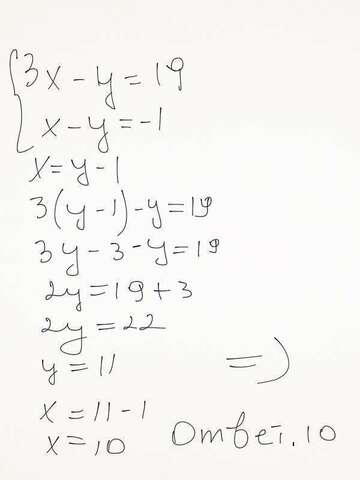 {3x - y = 19
x - y = -1
x = y - 1
3(y - 1) - y = 19
3y - 3 - y = 19
2y = 19 + 3
2y = 22
y = 11 =)
x = 11 - 1
x = 10 Ответ. 10